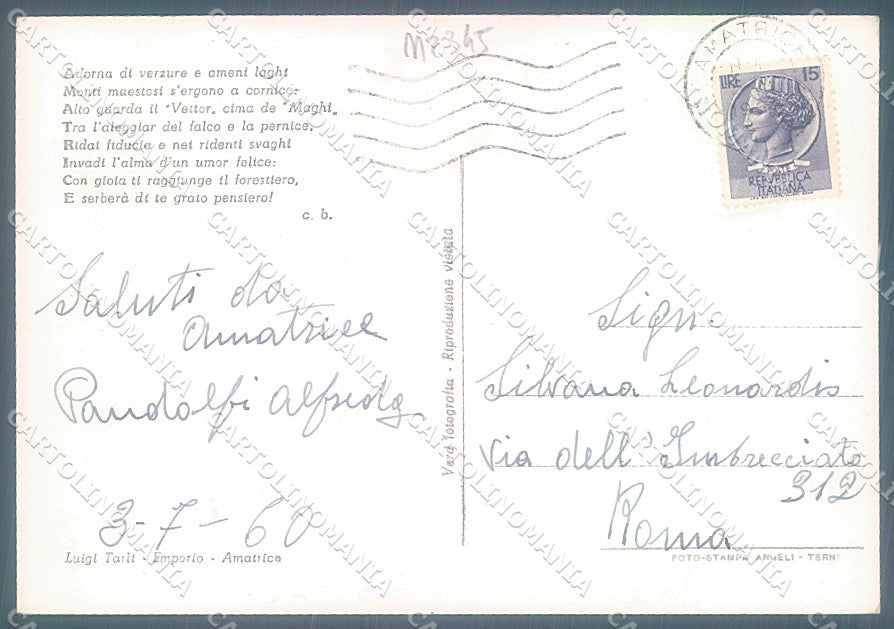 M2345
AMATRICE
LIRE 15
REPVBBLICA
ITALIANA
Adorna di verzure e ameni laghi
Monti maestosi s'ergono a cornice:
Alto guarda il "Vettor„ cima de "Maghi„
Tra l'aleggiar del falco e la pernice,
Ridai fiducia e nei ridenti svaghi
Invadi l'alma d'un umor felice:
Con gioia ti raggiunge il forestiero,
E serberà di te grato pensiero!
c. b.
Saluti da
Amatrice
Pandolfi Alfredo
3-7-60
Luigi Tarli - Emporio - Amatrice
Vera fotografia - Riproduzione vietata
Sign.
Silvana Leonardis
Via dell'Imbrecciato
312
Roma
FOTO-STAMPA ANGELI - TERNI
CARTOLINOMANIA